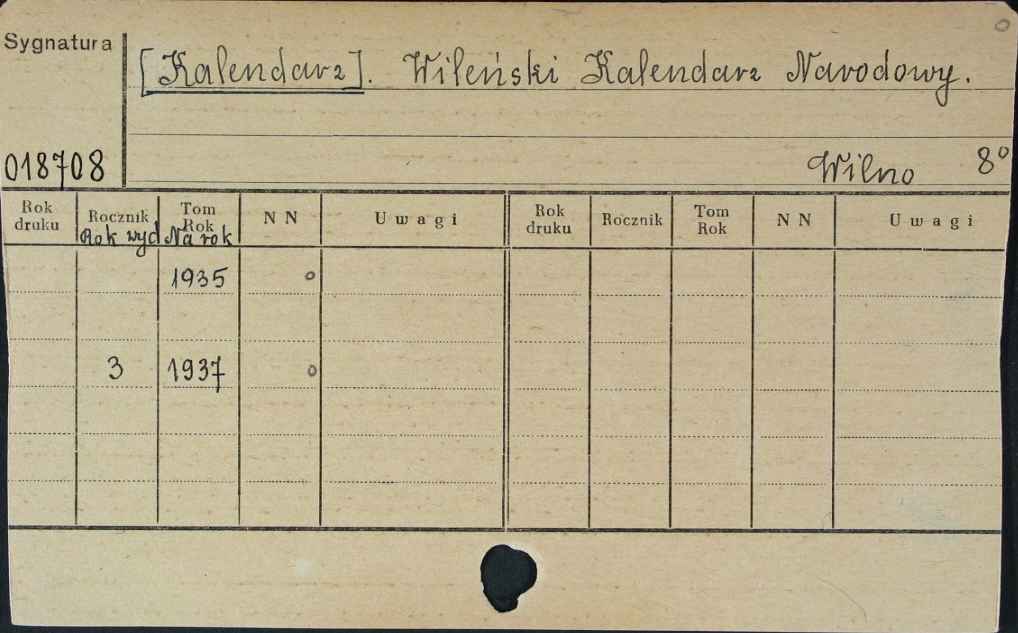 o
Sygnatura
[Kalendarz]. Wileński Kalendarz Narodowy.
018708
Wilno 8º
Rok druku Rocznik Tom Rok N N Uwagi Rok druku Rocznik Tom Rok N N Uwagi
Rok wyd Na rok
1935 o
3 1937 o